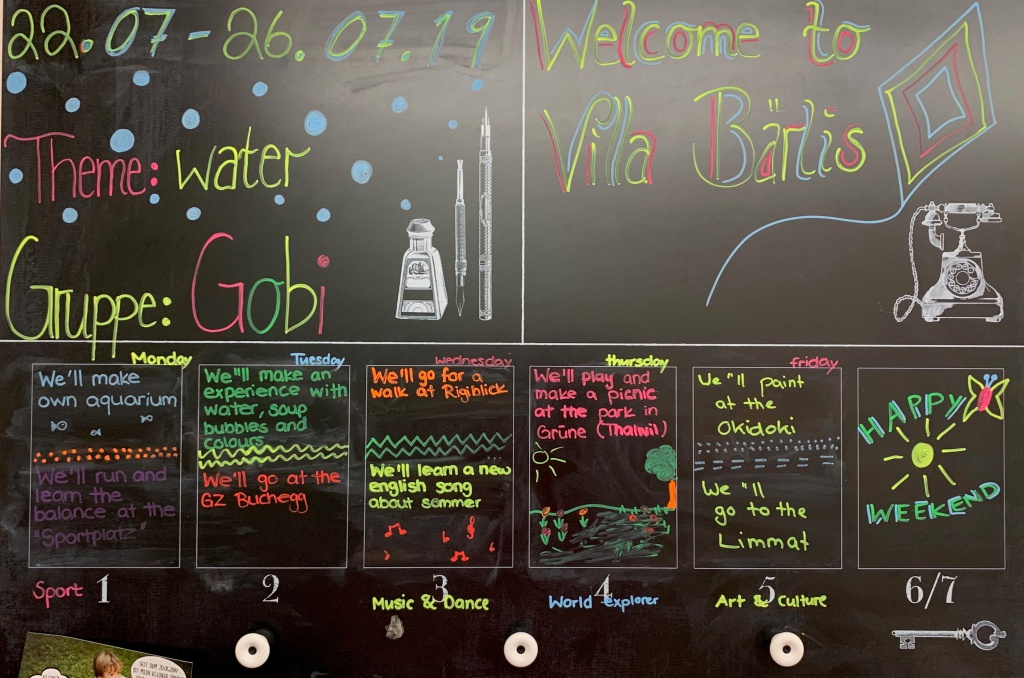 22.07-26.07.19
Theme: water
Gruppe: Gobi
Welcome to
Villa Bärlis
Monday
We'll make
own aquarium
We'll run and
learn the
balance at the
"Sportplatz"
1
Sport
Tuesday
We"ll make an
experience with
water, soup
bubbles and
colours
We'll go at the
GZ Buchegg
2
wednesday
We'll go for a
walk at Rigiblick
We'll learn a new
english song
about sommer
3
Music & Dance
thursday
We'll play and
make a picnic
at the park in
Grüne (Thalwil)
4
World explorer
friday
We"ll paint
at the
Okidoki
We"ll
go to the
Limmat
5
Art & Culture
HAPPY
WEEKEND
6/7